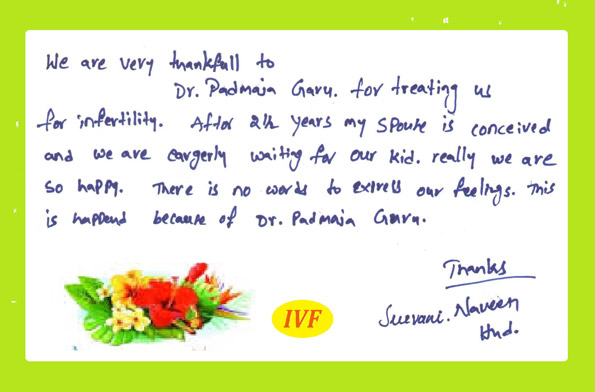 We are very thankfull to
Dr. Padmaja Garu. for treating us
for infertility. After 2½ years my spouse is conceived
and we are eargerly waiting for our kid. really we are
so happy. There is no words to exress our feelings. This
is happend because of Dr. Padmaja Garu.
Thanks
IVF
Naveen
Hnd.